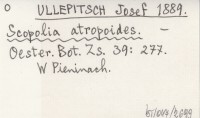 O ULLEPITSCH Josef 1889.
Scopolia atropoides. —
Oester. Bot. Zs. 39: 277.
W Pieninach.